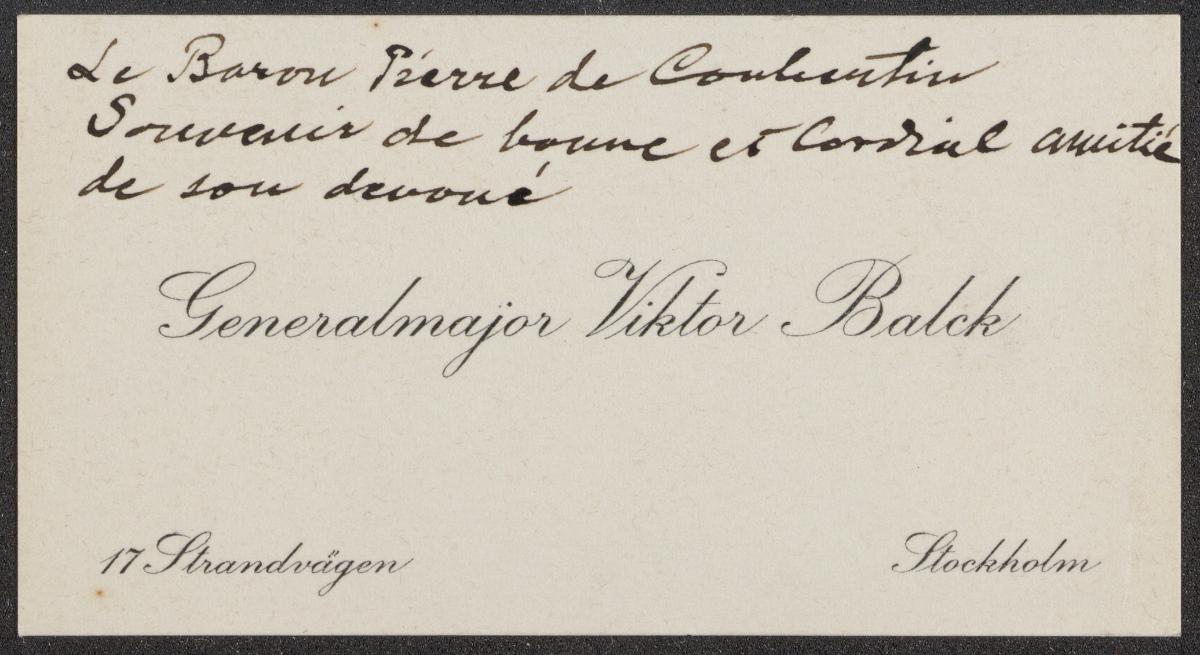 Le Baron Pierre de Coubertin
Souvenir de bonne et Cordial amitié
de son devoué
Generalmajor Viktor Balck
17 Strandvägen
Stockholm